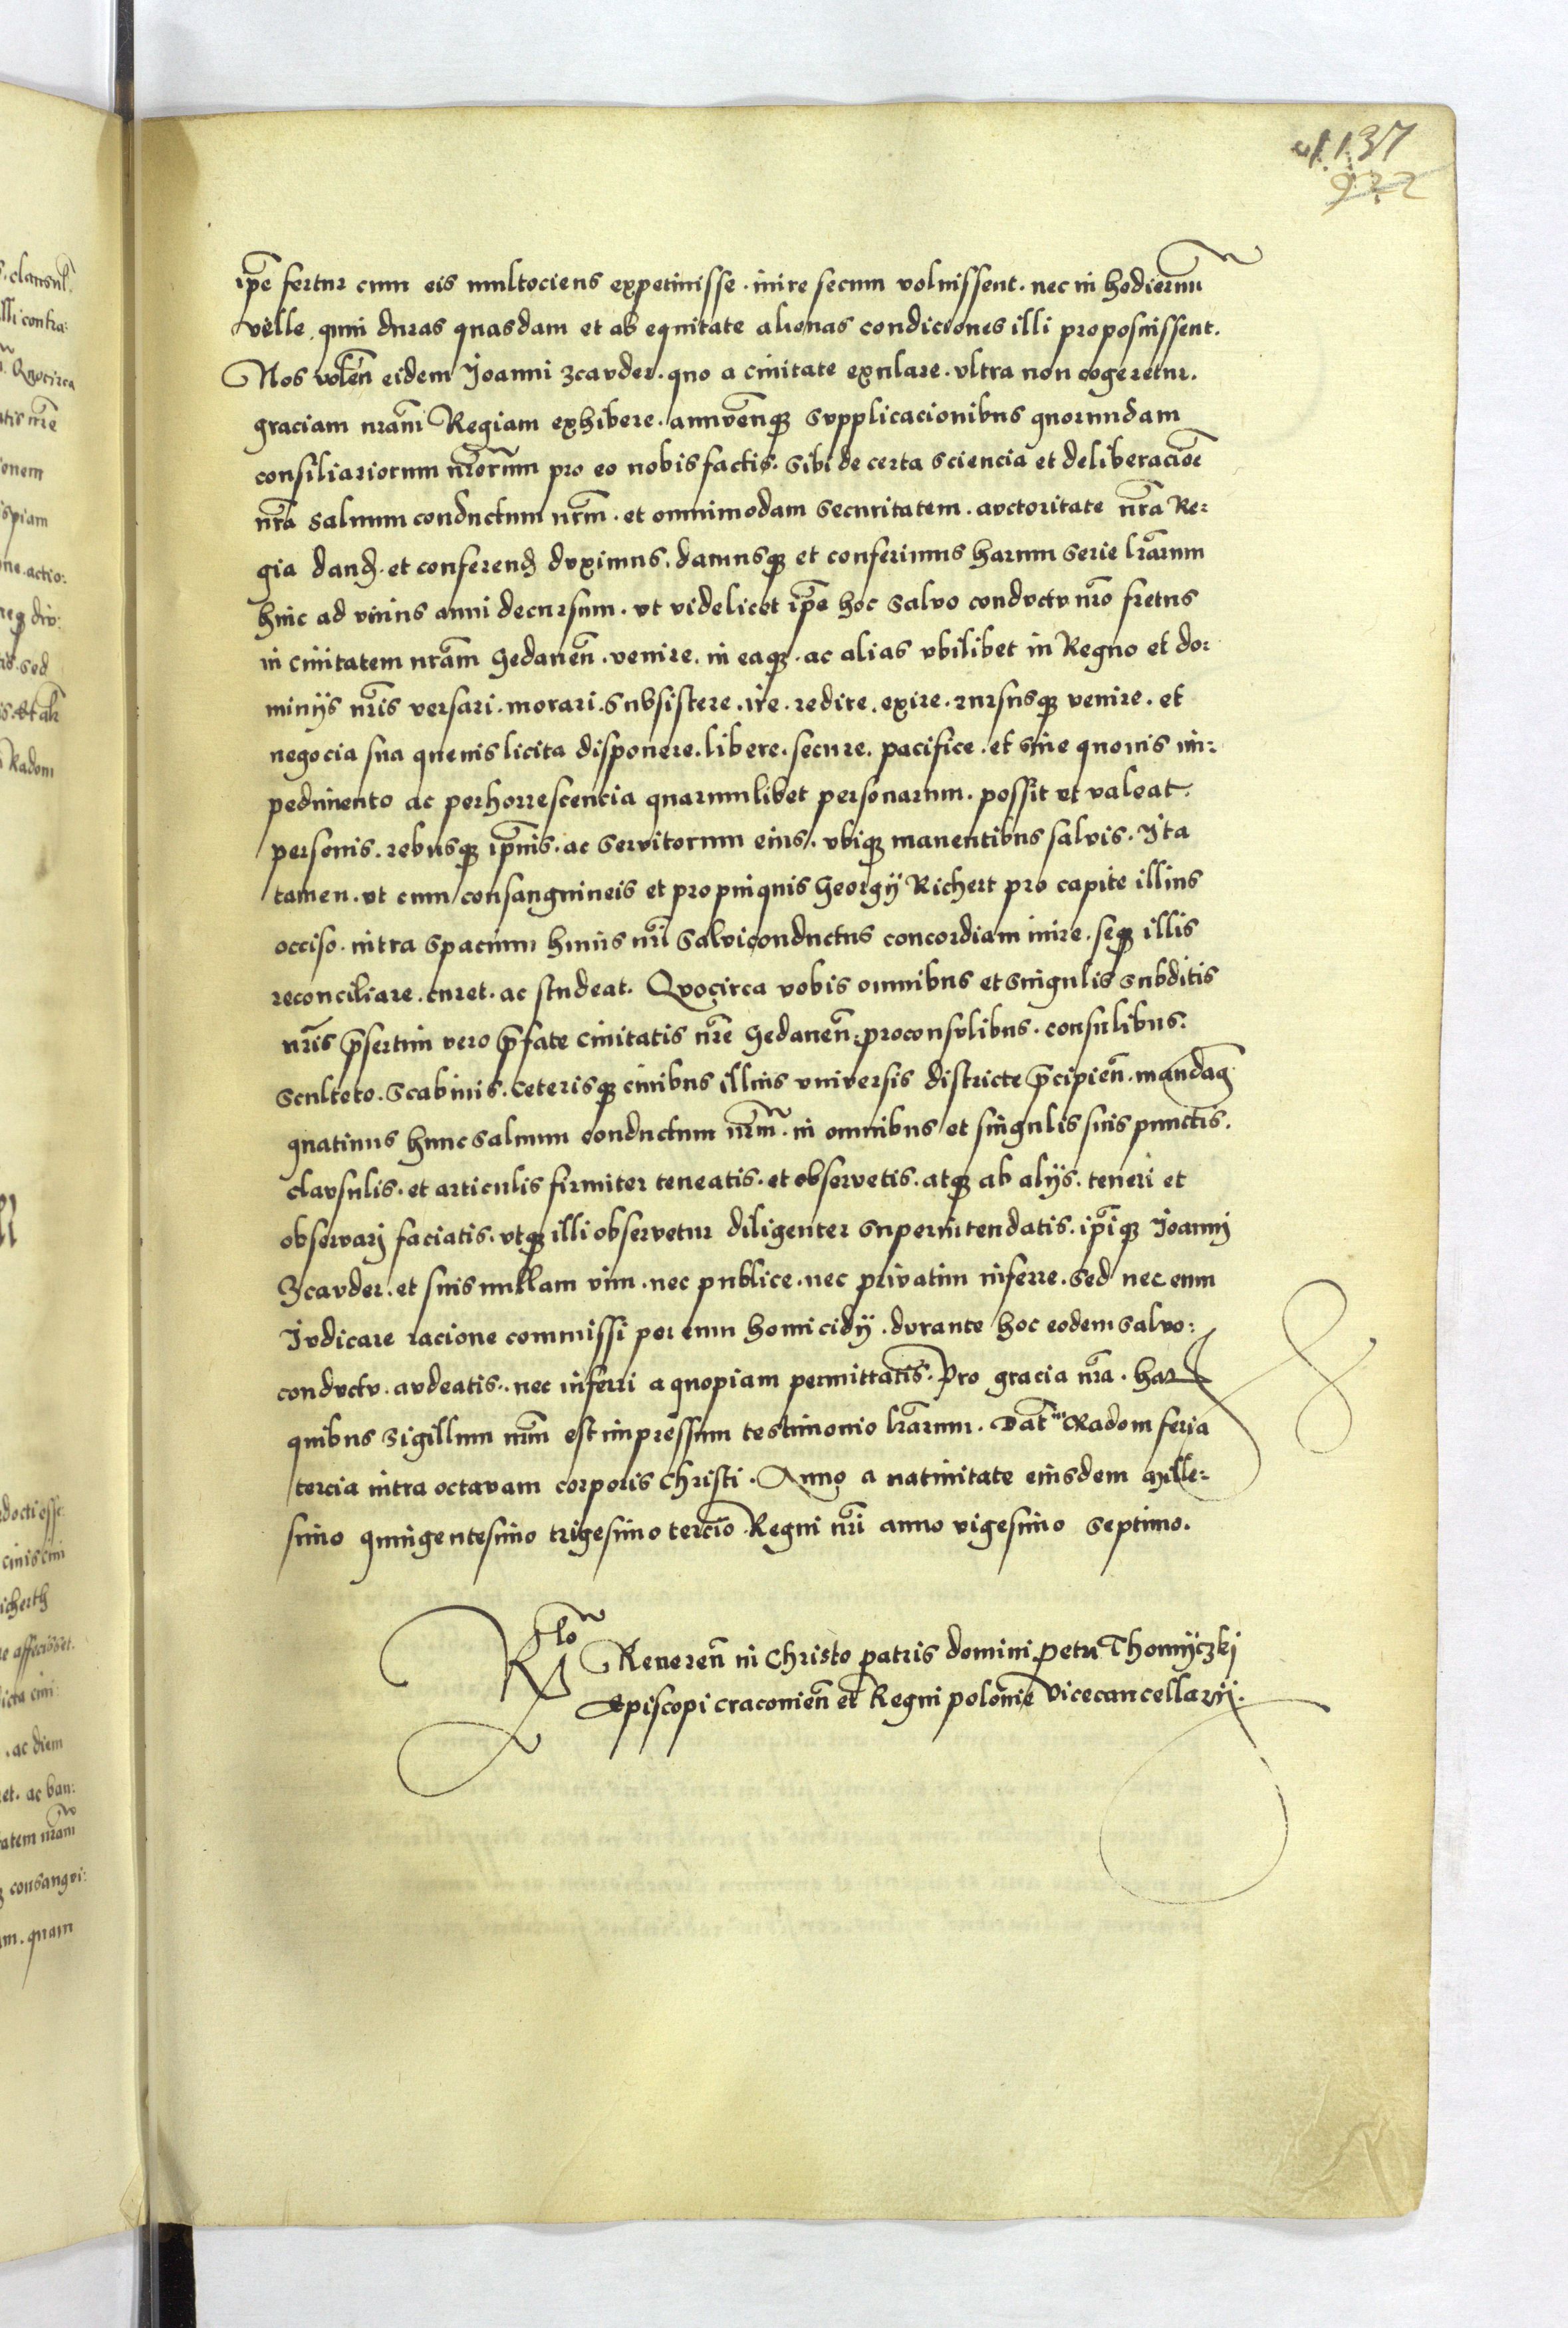 137
922
ip̄e fertur cum eis multociens expetiuisse. inire secum voluissent. nec in hodiernū
velle. quin duras quasdam et ab equitate alienas condiciones illi proposuissent.
Nos volen̄ eidem Joanni Zcavder. quo a ciuitate exulare. vltra non cogeretur.
graciam nr̄am Regiam exhibere. annven̄q₃ svpplicacionibus quorumdam
consiliariorum nr̄orum pro eo nobis factis. Sibi de certa sciencia et deliberacioē
nr̄a Saluum conductum nr̄m. et omnimodam Securitatem. avctoritate nr̄a Re:
gia dand̄. et conferend̄ dvximus. damusq₃ et conferimus harum Serie lr̄arum
hinc ad vnius anni decursum. vt videlicet ip̄e hoc Salvo condvctv nr̄o fretus
in Ciuitatem nr̄am Gedanen̄. venire. in eaq₃. ac alias vbilibet in Regno et do:
minijs nr̄is versari. morari. Subsistere. ire. redire. exire. rursusq₃ venire. et
negocia sua queuis licita disponere. libere. secure. pacifice. et sine quouis im:
pedimento ac perhorrescencia quarumlibet personarum. possit et valeat.
personis. rebusq₃ ip̄ius. ac Servitorum eius. vbiq₃ manentibus salvis. Ita
tamen. vt cum consanguineis et propinquis Georgij Richert pro capite illius
occiso. intra spacium huius nr̄i Salviconductus concordiam inire. seq₃ illis
reconciliare. curet. ac studeat. Qvocirca vobis omnibus et singulis subditis
nr̄is p̄sertim vero p̄fate Ciuitatis nr̄e Gedanen̄. proconsvlibus. consulibus.
Sculteto. Scabinis. Ceterisq₃ ciuibus illius vniversis districte p̄cipien̄. mandam̄
quatinus hunc saluum conductum nr̄m. in omnibus et singulis suis punctis.
clavsulis. et articulis firmiter teneatis. et observetis. atq₃ ab alijs. teneri et
observarj faciatis. vtq₃ illi observetur diligenter superintendatis. ip̄iq₃ Joannj
Zcavder. et suis nullam vim. nec publice. nec privatim inferre. Sed nec eum
Jvdicare racione commissi per eum homicidij. dvrante hoc eodem salvo:
condvctv. avdeatis. nec inferri a quopiam permittatis. Pro gracia nr̄a. har
quibus Sigillum nr̄m est impressum testimonio lr̄arum. Dat̄ Radom feria
tercia intra octavam corporis Christi. Anno a natiuitate eiusdem Mille:
simo quingentesimo trigesimo tercio Regni nr̄i anno vigesimo Septimo.
Rlo Reueren̄ in Christo patris domini Petri Thomijczkj
Episcopi Cracouien̄ et Regni polonie Vicecancellarij.